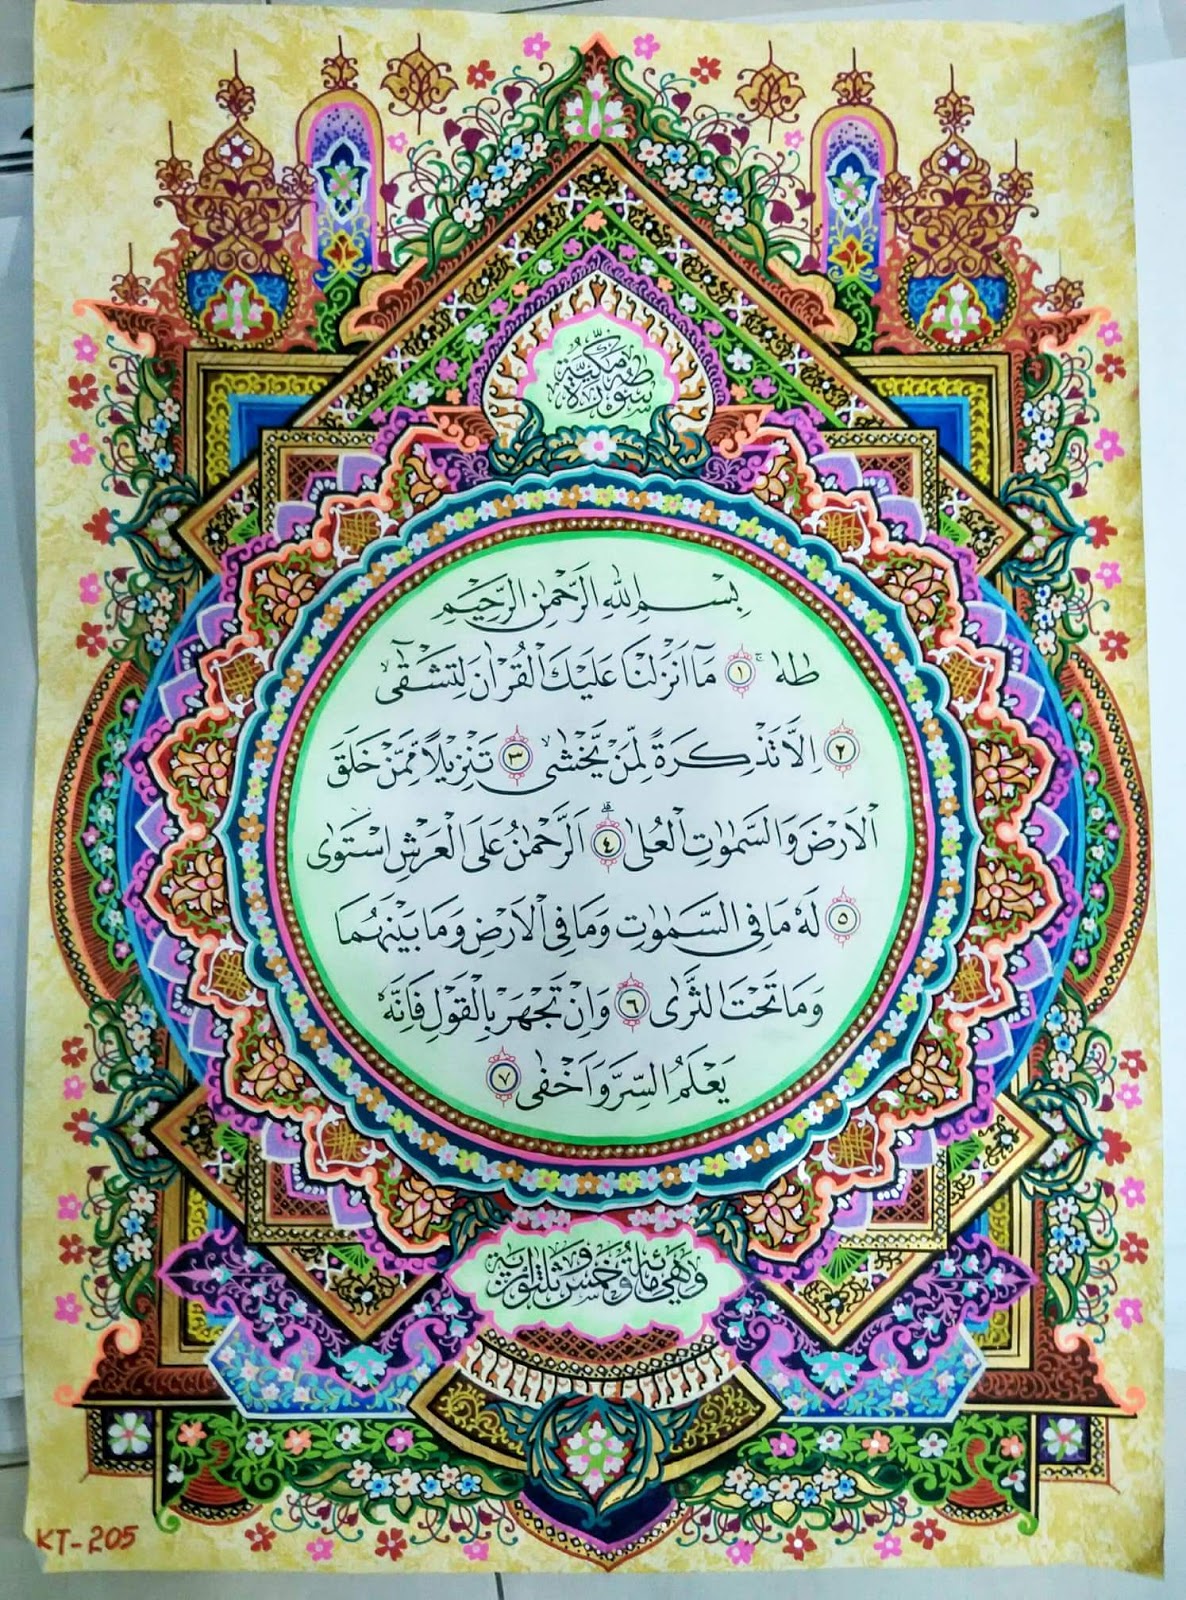 سورة طه مكية
بسم الله الرحمن الرحيم
طه ۚ ١ مَآ اَنْزَلْنَا عَلَيْكَ الْقُرْاٰنَ لِتَشْقٰٓى
٢ اِلَّا تَذْكِرَةً لِّمَنْ يَّخْشٰى ٣ تَنْزِيْلًا مِّمَّنْ خَلَقَ
الْاَرْضَ وَالسَّمٰوٰتِ الْعُلٰى ۗ ٤ اَلرَّحْمٰنُ عَلَى الْعَرْشِ اسْتَوٰى
٥ لَهٗ مَا فِى السَّمٰوٰتِ وَمَا فِى الْاَرْضِ وَمَا بَيْنَهُمَا
وَمَا تَحْتَ الثَّرٰى ٦ وَاِنْ تَجْهَرْ بِالْقَوْلِ فَاِنَّهٗ
يَعْلَمُ السِّرَّ وَاَخْفٰى ٧
وهي مائة وخمس وثلاثون اية
KT-205